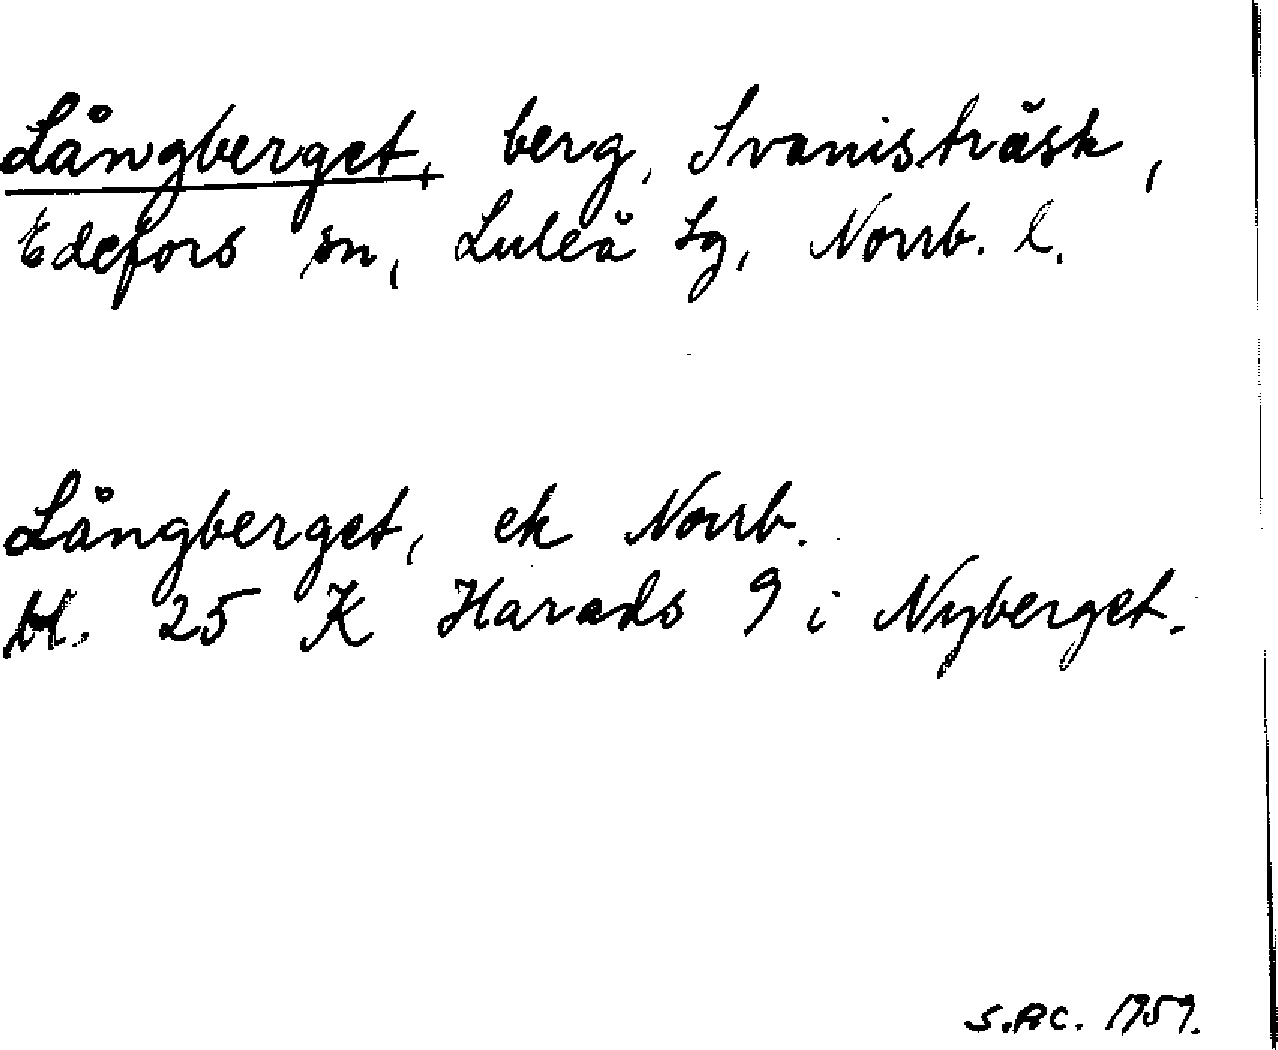 Långberget, berg, Svanisträsk,
Edefors sn, Luleå tg, Norrb. l.
Långberget, ek Norrb.
bl. 25 K Harads 9 i Nyberget.
S.AC. 1959.